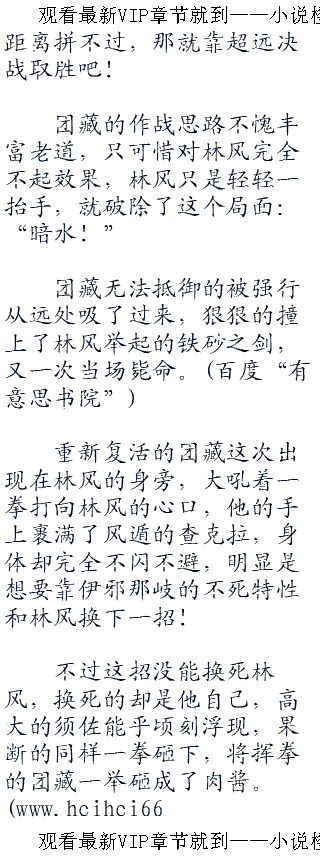 观看最新VIP章节就到——小说检
距离拼不过，那就靠超远决
战取胜吧！
团藏的作战思路不愧丰
富老道，只可惜对林风完全
不起效果，林风只是轻轻一
抬手，就破除了这个局面：
“暗水！”
团藏无法抵御的被强行
从远处吸了过来，狠狠的撞
上了林风举起的铁砂之剑，
又一次当场毙命。(百度“有
意思书院”)
重新复活的团藏这次出
现在林风的身旁，大吼着一
拳打向林风的心口，他的手
上裹满了风遁的查克拉，身
体却完全不闪不避，明显是
想要靠伊邪那岐的不死特性
和林风换下一招！
不过这招没能换死林
风，换死的却是他自己，高
大的须佐能乎顷刻浮现，果
断的同样一拳砸下，将挥拳
的团藏一举砸成了肉酱。
(www.hcihci66
观看最新VIP章节就到——小说